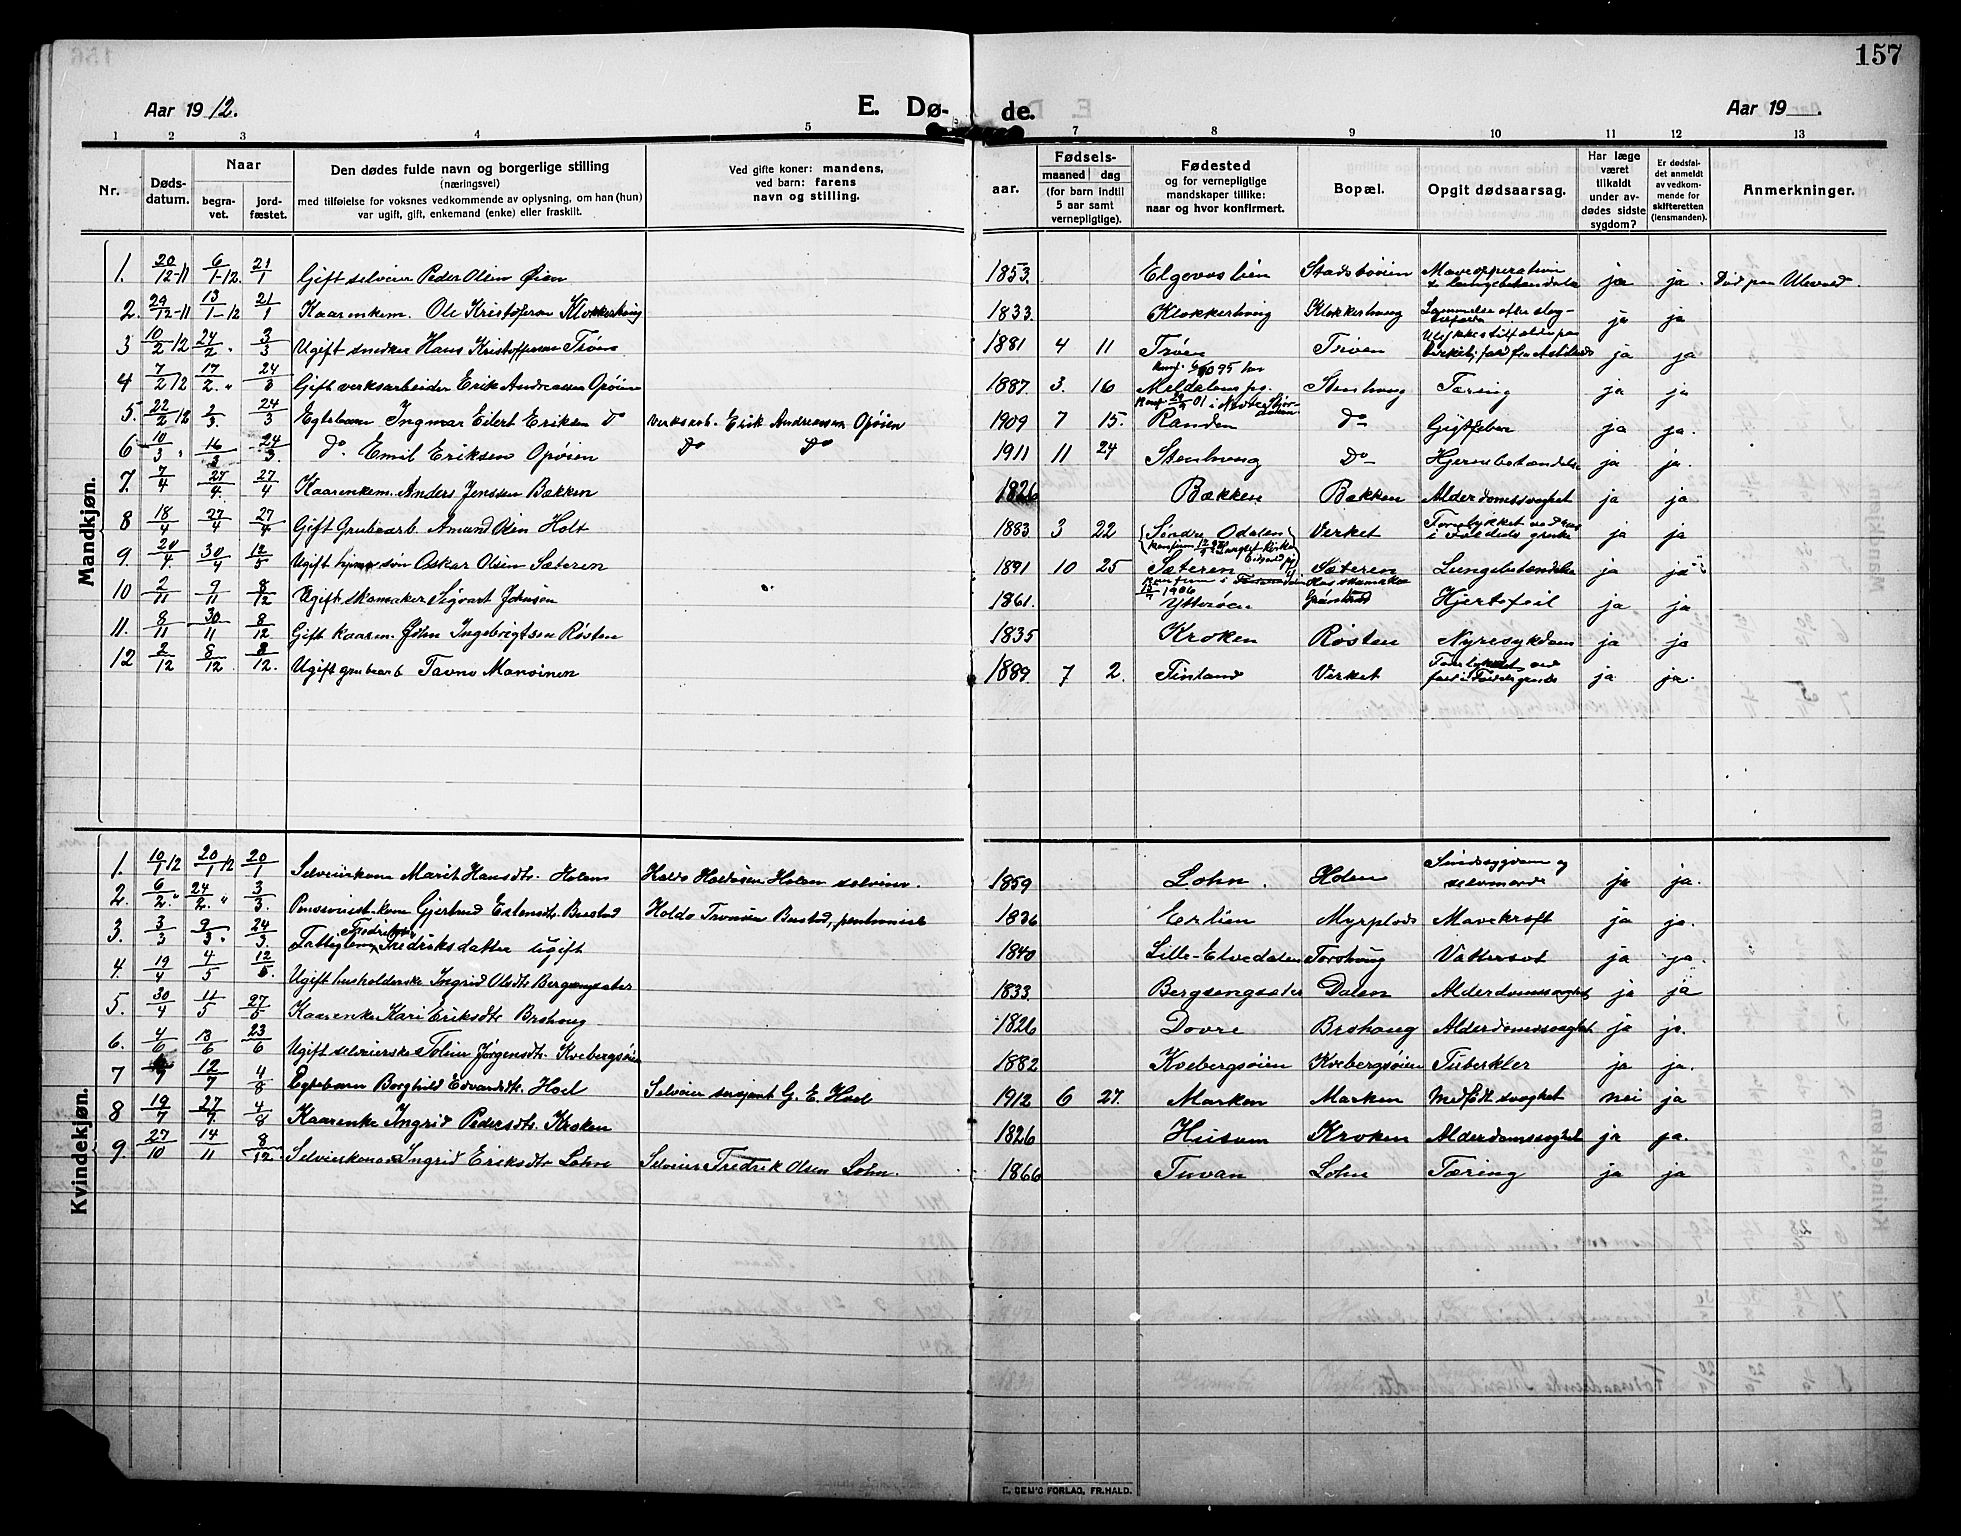 157
Aar 1912.
E. Dø-
de.
Aar 19 .
1 2 3 4 5 7 8 9 10 11 12 13
Nr.
Døds-
datum.
Naar
begra-
vet.
jord-
fæstet.
Den dødes fulde navn og borgerlige stilling
(næringsvei)
med tilføielse for voksnes vedkommende av oplysning, om han (hun)
var ugift, gift, enkemand (enke) eller fraskilt.
Ved gifte koner: mandens,
ved barn: farens
navn og stilling.
aar.
Fødsels-
maaned dag
(for barn indtil
5 aar samt
vernepligtige).
Fødested
og for vernepligtige
mandskaper tillike:
naar og hvor konfirmert.
Bopæl.
Opgit dødsaarsag.
Har læge
været
tilkaldt
under av-
dødes sidste
sygdom?
Er dødsfal-
det anmeldt
av vedkom-
mende for
skifteretten
(lensmanden).
Anmerkninger.
Mandkjøn.
1. 20/12-11 6/1-12. 21/1 Gift selveier Peder Olsen Øien 1853. Stadsbøien Maveopperation ja ja. Død paa Ulevold.
2. 29/12-11 13/1-12 21/1 Kaarenkem. Ole Kristofersen Klokkerhaug 1833. Klokkerhaug Klokkerhaug ja ja
3 10/2 12 24/2 " 3/3 Ugift snedker Hans Kristoffersen Trøen 1881 4 11 Trøen Trøen ja ja
4 7/2 12 17/2 " 24/3 Gift verksarbeider Erik Andreassen Opøien 1887. 3. 16 Meldalens pg. Stenhaug Tæring ja ja
5. 22/2 12 2/3. 24/3 Egtebarn Ingmar Eilert Eriksen Do Verksarb. Erik Andreassen Opøien 1909 7 15. Randen Do Gigtfeber ja ja.
6 10/3 " 16/3 24/3. Do. Emil Eriksen Opøien Do Do 1911 11 24 Stenhaug Do Hjernebetændelse ja ja.
7. 7/4 27/4. 27/4 Kaarenkem. Anders Jenssen Bækken 1826 Bækken Bækken Alderdomssvaghet ja ja
8 18/4 27/4 27/4 Gift Grubearb. Amund Olsen Holt 1883 3 22 Søndre Odalen Virket ja ja
9. 20/4 30/4 12/5 Ugift søn Oskar Olsen Sæteren 1891 10 25 Sæteren Sæteren Lungebetændelse ja ja
10 2/11 9/11 8/12 Ugift skomaker Sigvart Johnsen 1861. Ytterøen Hjertefeil ja ja
11. 8/11 30/11 8/12 Gift kaarem. John Ingebrigtsen Røsten 1835 Kroken Røsten Nyresykdom ja ja
12 2/12 8/12 8/12. Ugift grubearb Tavno Manninen 1889 7 2. Finland Virket ja ja.
Kvindekjøn.
1. 10/1 12 20/1 12 20/1 Selveierkone Marit Hansdtr. Holen Holdo Holdosen Holen selveier. 1859 Lohn. Holen Sindssygdom og selvmord ja ja.
2. 6/2 " 24/2 " 3/3. Pensionist-kone Gjertrud Estensdtr. Bustad Holdo Tronsen Bustad, pentionist 1836 Erlien Myrplads Mavekræft ja ja.
3. 3/3 9/3 " 24/3. Fattiglem Fredriksdatter ugift 1840 Lille-Elvedalen Torshaug Vattersot ja ja.
4. 19/4 4/5 12/5. Ugift husholderske Ingrid Olsdtr Bergsengsæter 1833. Bergsengsæter Dalen Alderdomssvaghet ja ja
5. 30/4 11/5 27/5 Kaarenke Kari Eriksdtr Brohaug 1826 Dovre Brohaug Alderdomssvaghet ja ja.
6. 4/6 13/6 23/6 Ugift selveierske Toline Jørgensdtr. Kvebergsøien 1882 Kvebergsøien Kvebergsøien Tuberkler ja ja.
7 /7 12/7 4/8 Egtebarn Borghild Edvardsdtr. Hoel Selveier sersjant G. E. Hoel 1912 6 27. Marken Marken Medfødt svaghet nei ja
8 19/7 27/7. 4/8 Kaarenke Ingrid Pedersdtr. Kroken 1826 Husum Kroken Alderdomssvaghet ja ja.
9 27/10 14/11 8/12. Selveierkone Ingrid Eriksdtr Lohn Selveier Fredrik Olsen Lohn. 1866 Tuvan Lohn Tæring ja ja
E. DEM'S FORLAG, FR.HALD.